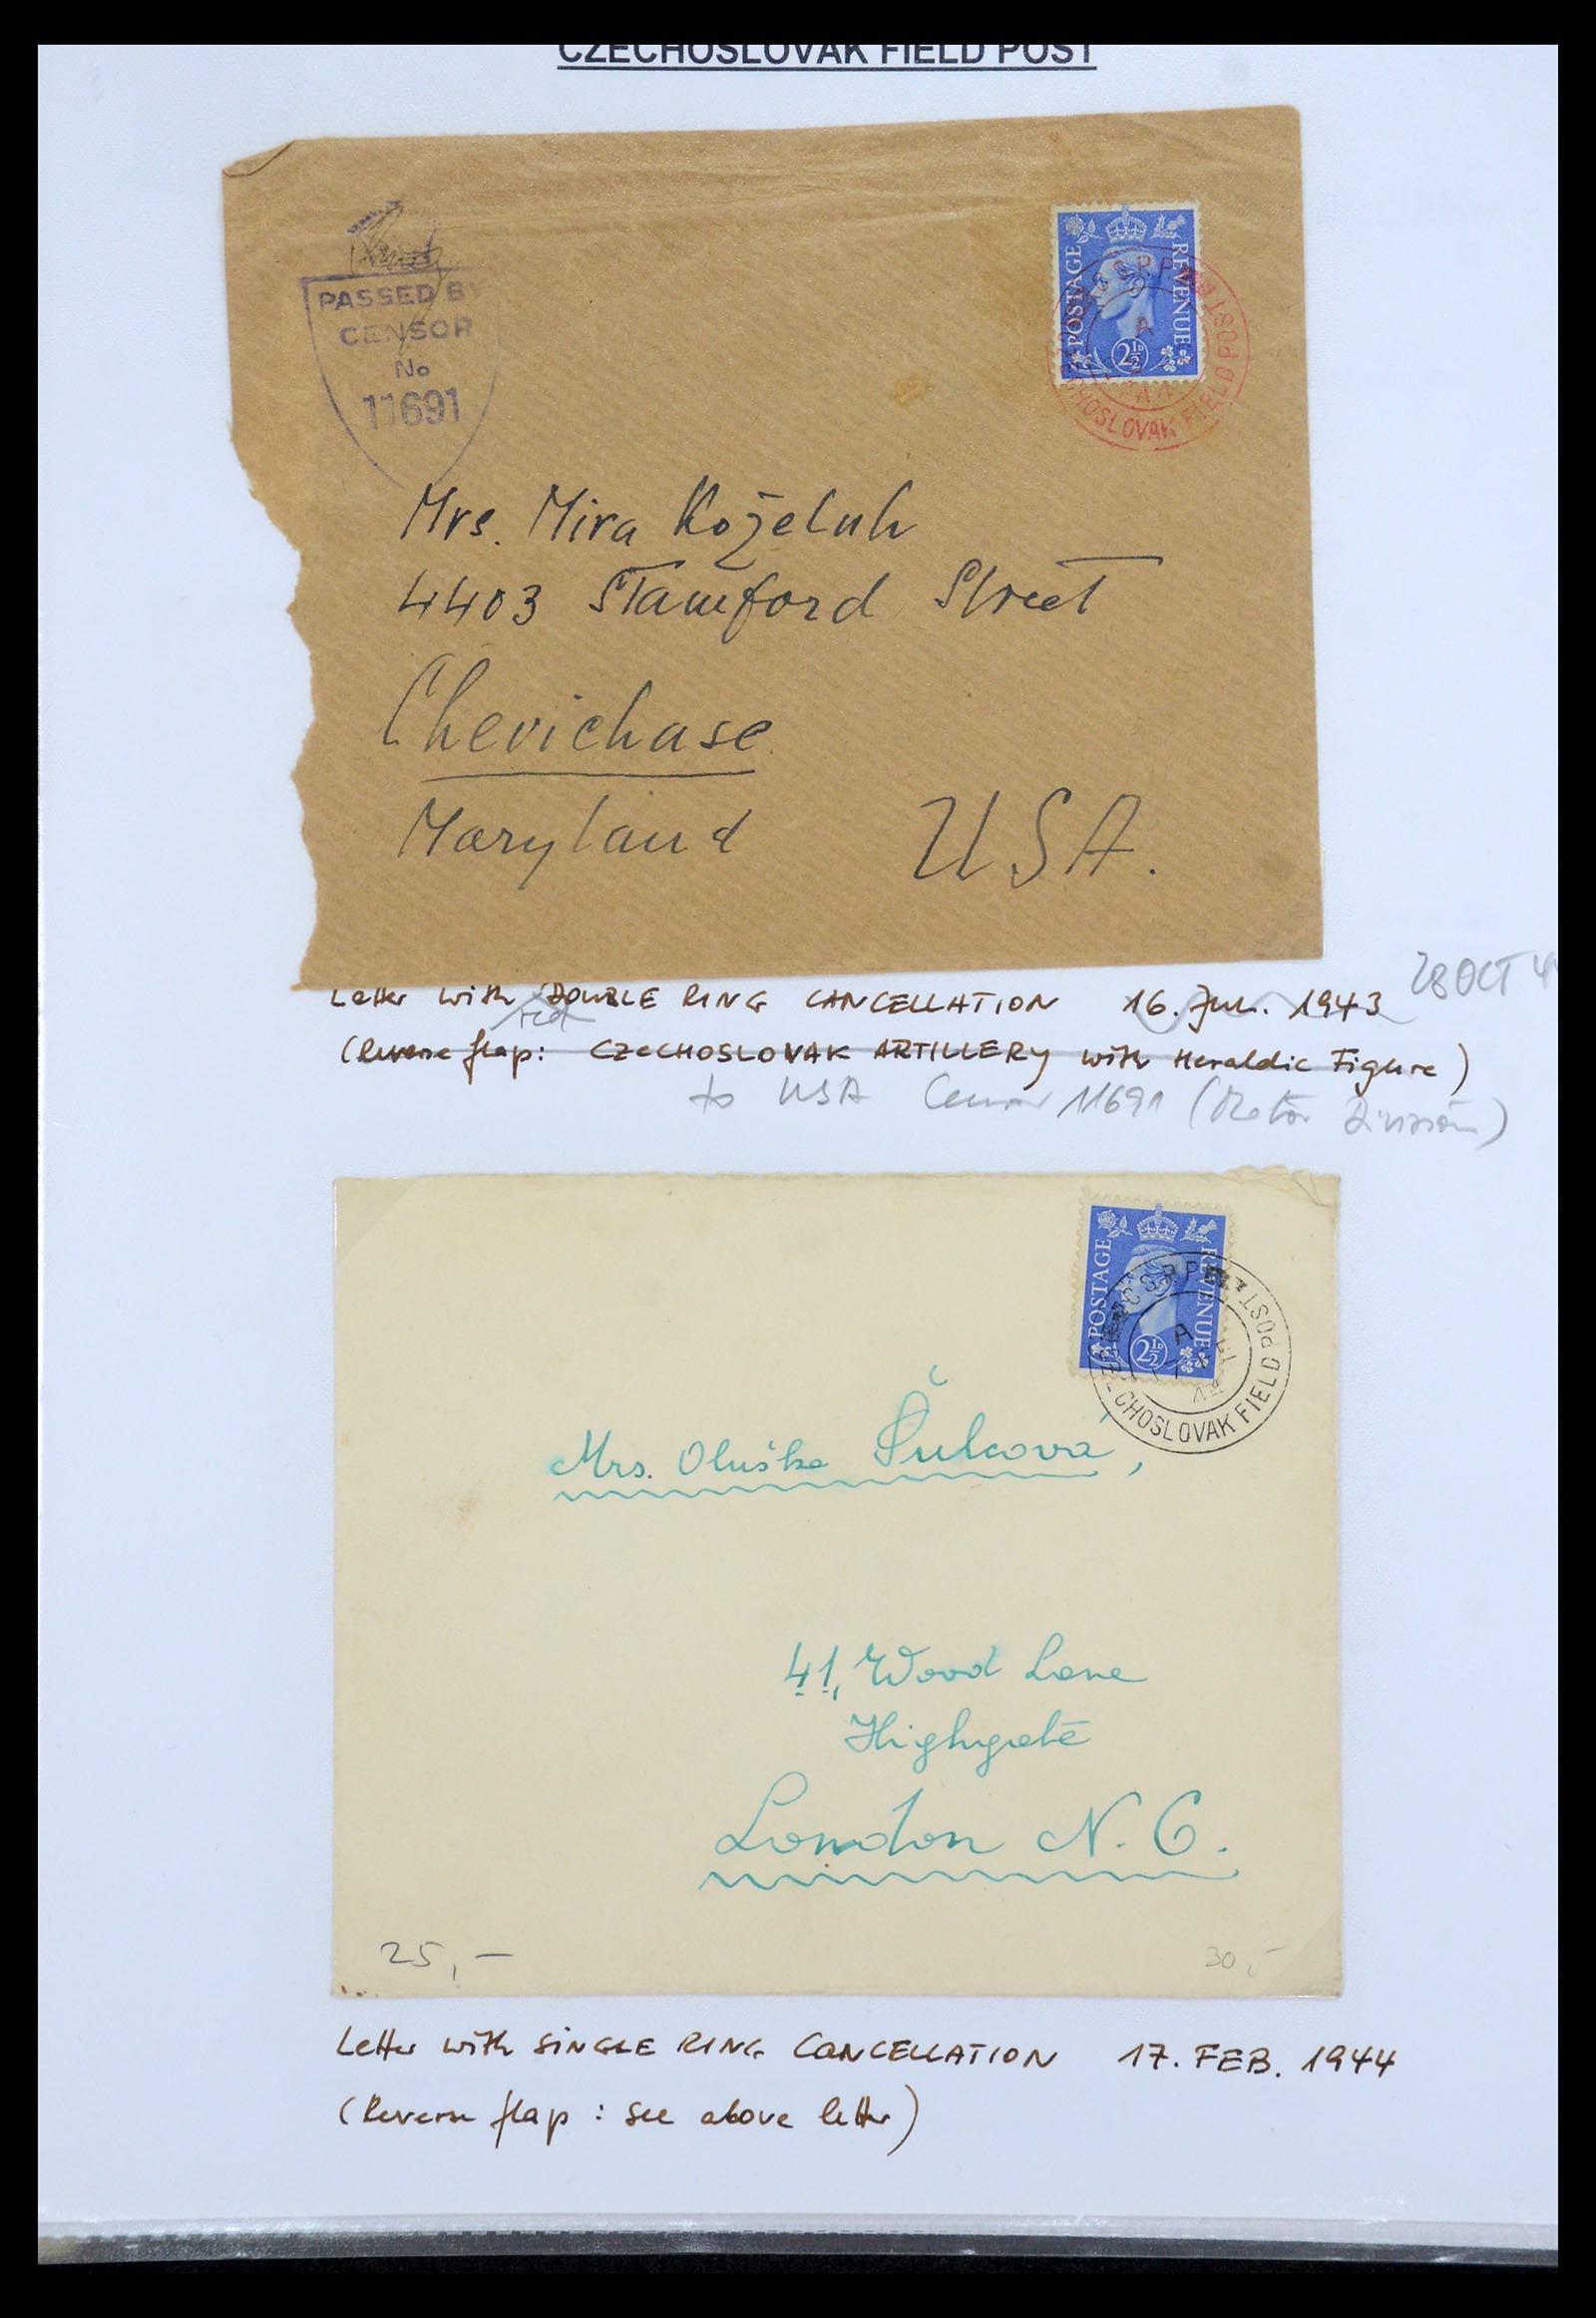 CZECHOSLOVAK FIELD POST
PASSED BY
CENSOR
No
11691
POSTAGE
REVENUE
2½D
A
CHOSLOVAK FIELD POST
Mrs. Mira Koželuh
4403 Stamford Street
Chevichase
Maryland USA.
Letter with DOUBLE RING CANCELLATION 16. Jul. 1943 28 OCT 4
red
(Reverse flap: CZECHOSLOVAK ARTILLERY with Heraldic Figure)
to USA Censor 11691 (Motor Division)
POSTAGE
REVENUE
2½D
A
CHOSLOVAK FIELD POST
Mrs. Oluška Šulcová,
41, Wood Lane
Highgate
London N. 6.
25,- 30,-
Letter with SINGLE RING CANCELLATION 17. FEB. 1944
(Reverse flap: see above letter)